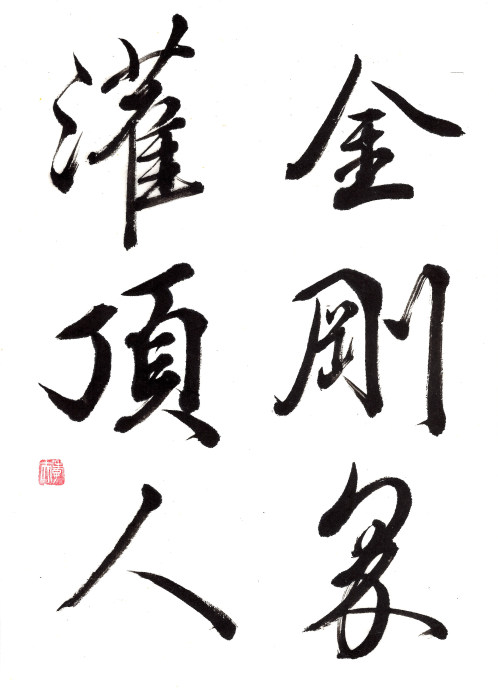 金剛界
灌頂人